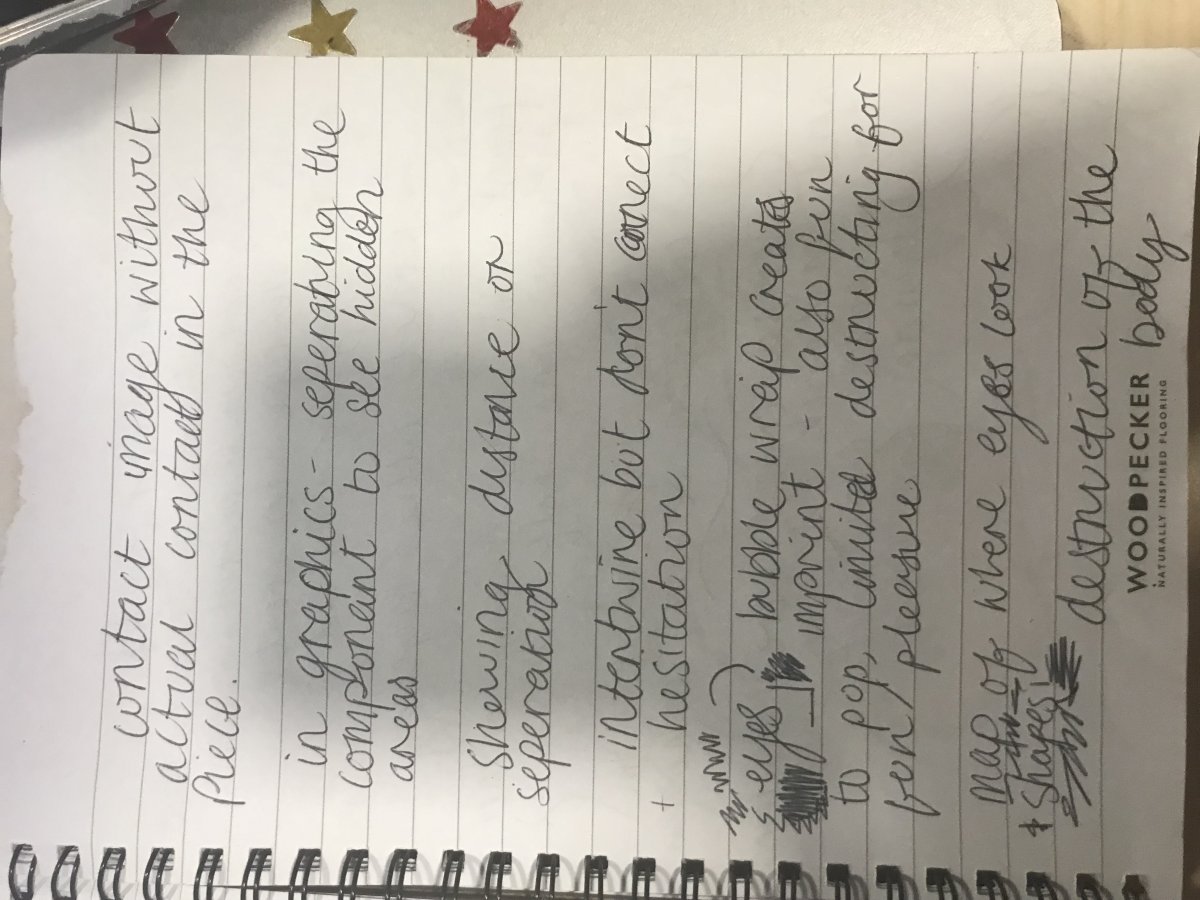 contact image without
actual contact in the
piece.
in graphics - seperating the
componeant to see hidden
areas
Shewing distance or
seperation
intertwine but don't connect
+ hesitation
eyes bubble wrap creates
imprint - also fun
to pop, limited destructing for
fun / pleasure
map of where eyes look
& Shapes
destruction of the
body
WOODPECKER
NATURALLY INSPIRED FLOORING